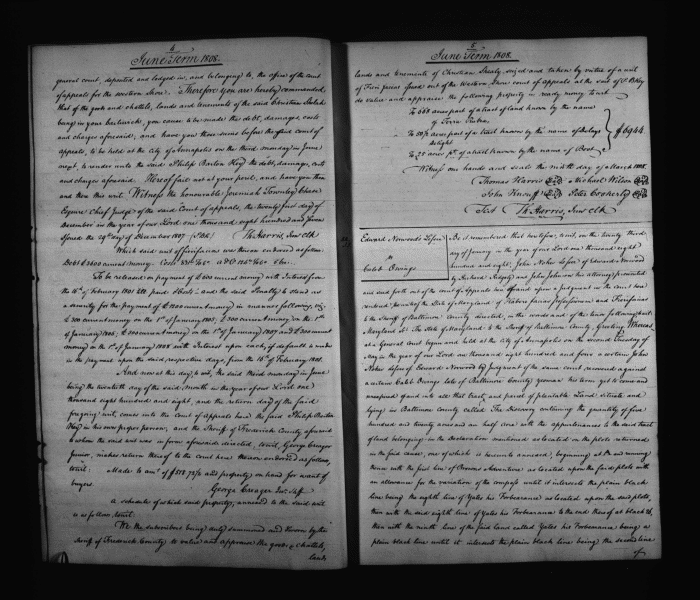 4
June Term 1808.
general court, deputed and lodged in, and belonging to, the office of the court
of appeals for the western shore. Therefore you are hereby commanded,
that of the goods and chattels, lands and tenements of the said Christian Shealy
being in your bailiwick, you cause to be made the debt, damages, costs
and charges aforesaid, and have you those sums before the said court of
appeals, to be held at the City of Annapolis on the third monday in June
next, to render unto the said Philip Barton Key the debt, damages, costs
and charges aforesaid. Hereof fail not at your peril, and have you then
and there this writ. Witness the honourable Jeremiah Townley Chase
Esquire Chief Judge of the said Court of appeals, the twenty first day of
December in the year of our Lord one thousand eight hundred and seven
Issued the 29th day of December 1807. Th: Harris Jun clk
Which said writ of fierifacias was thereon endorsed as follows
To be released on payment of current money with Interest from
the 16th of February 1801 and the said Shealy to stand as
a security for the payment of current money in manner following, viz.
current money on the 1st of January 1805, current money on the 1st
of January 1806, current money on the 1st of January 1807 and current
money on the 1st of January 1808 with Interest upon each, if default is made
in the payment upon the said respective days, from the 16th of February 1801.
And now at this day to wit, the said third monday in June
being the twentieth day of the said Month in the year of our Lord one
thousand eight hundred and eight, and the return day of the said
foregoing writ, comes into the court of appeals here the said Philip Barton
Key in his own proper person, and the Sheriff of Frederick County aforesaid
to whom the said writ was in form aforesaid directed, to wit, George Creager
Junior, makes return thereof to the court here thereon endorsed as follows,
to wit. Made to amt. of and property on hand for want of
buyers. George Creager Junr. Shff
A schedule of which said property, annexed to the said writ
is as follows to wit.
We the subscribers being duly summoned and sworn by the
Sheriff of Frederick County to value and appraise the goods & chattels,
lands
5
June Term 1808.
lands and tenements of Christian Shealy, seized and taken by virtue of a writ
of Fieri facias issued out of the Western Shore court of appeals at the suit of P. B. Key
do value and appraise the following property in ready money to wit
To 668 acres part of a tract of land known by the name
of
To 50½ acres part of a tract known by the name of
delight
To acres pt. of a tract known by the name of
$6944
Witness our hands and seals the ninth day of March 1808
Thomas Harris Michael Wilson
John Peter
Test Th: Harris, Jun clk
Edward Norwoods Lessee
vs
Caleb Owings
Be it remembered that heretofore, to wit, on the twenty third
day of January in the year of our Lord one thousand eight
hundred and eight, John Nokes lessee of Edward Norwood
by Richard Ridgely and John Johnson his attornies, prosecuted
and sued forth out of the court of Appeals here upon a judgment in the court here
rendered, the writ of the State of Maryland of Habere facias possessionem and Fierifacias
to the Sheriff of Baltimore County directed, in the words and of the tenor following, to wit
Maryland sct. The State of Maryland to the Sheriff of Baltimore County, Greeting, Whereas
at a General court begun and held at the City of Annapolis on the second Tuesday of
May in the year of our Lord one thousand eight hundred and four a certain John
Nokes lessee of Edward Norwood by Judgment of the same court recovered against
a certain Caleb Owings late of Baltimore County yeoman his term yet to come and
unexpired of and into all that tract, and parcel of plantable Land situate and
lying in Baltimore county called The Discovery containing the quantity of five
hundred and twenty acres and an half one with the appurtenances to the said tract
of land belonging, in the Declaration mentioned as located on the plots returned
in the said cause, one of which is hereunto annexed, beginning at the end running
thence with the first line of Owens's Adventure as located upon the said plots with
an allowance for the variation of the compass until it intersects the plain black
line being the eighth line of Yates his Forbearance as located upon the said plots,
then with the said eight line of Yates his Forbearance to the end thereof at black th,
then with the ninth line of the said Land called Yates his Forbearance being a
plain black line until it intersects the plain black line being the second line
of